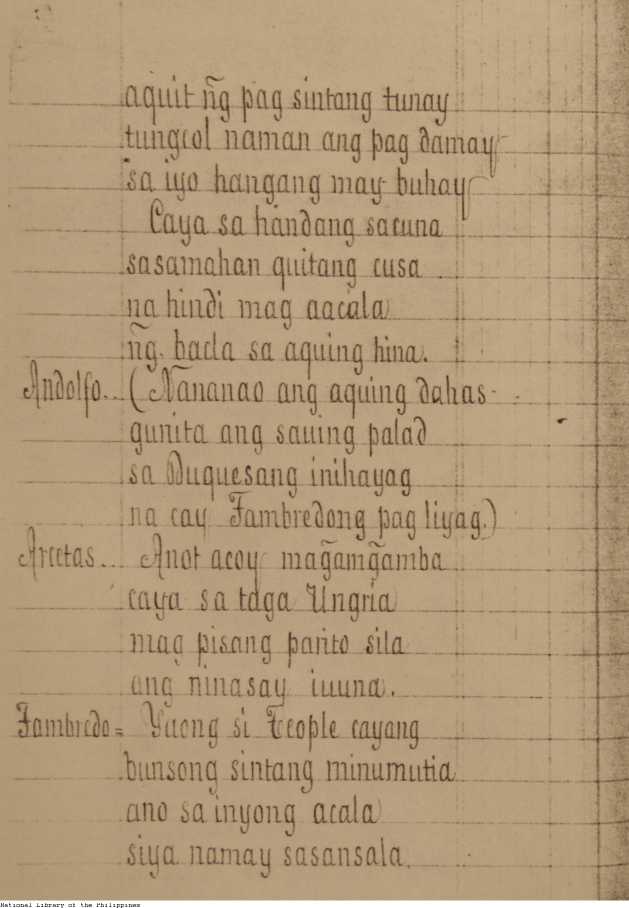 aquit ñg pag sintang tunay
tungcol naman ang pag damay
sa iyo hangang may buhay
Caya sa handang sacuna
sasamahan quitang cusa
na hindi mag aacala
ñg bacla sa aquing hina.
Andolfo.. (Nananao ang aquing dahas-
gunita ang sauing palad
sa Duquesang inihayag
na cay Fambredong pag liyag.)
Arcetas... Anot acoy mag̃amg̃amba
caya sa taga Ungria
mag pisang parito sila
ang ninasay iuuna.
Fambredo = Yaong si Teople cayang
bunsong sintang minumutia
ano sa inyong acala
siya namay sasansala.
National Library of the Philippines